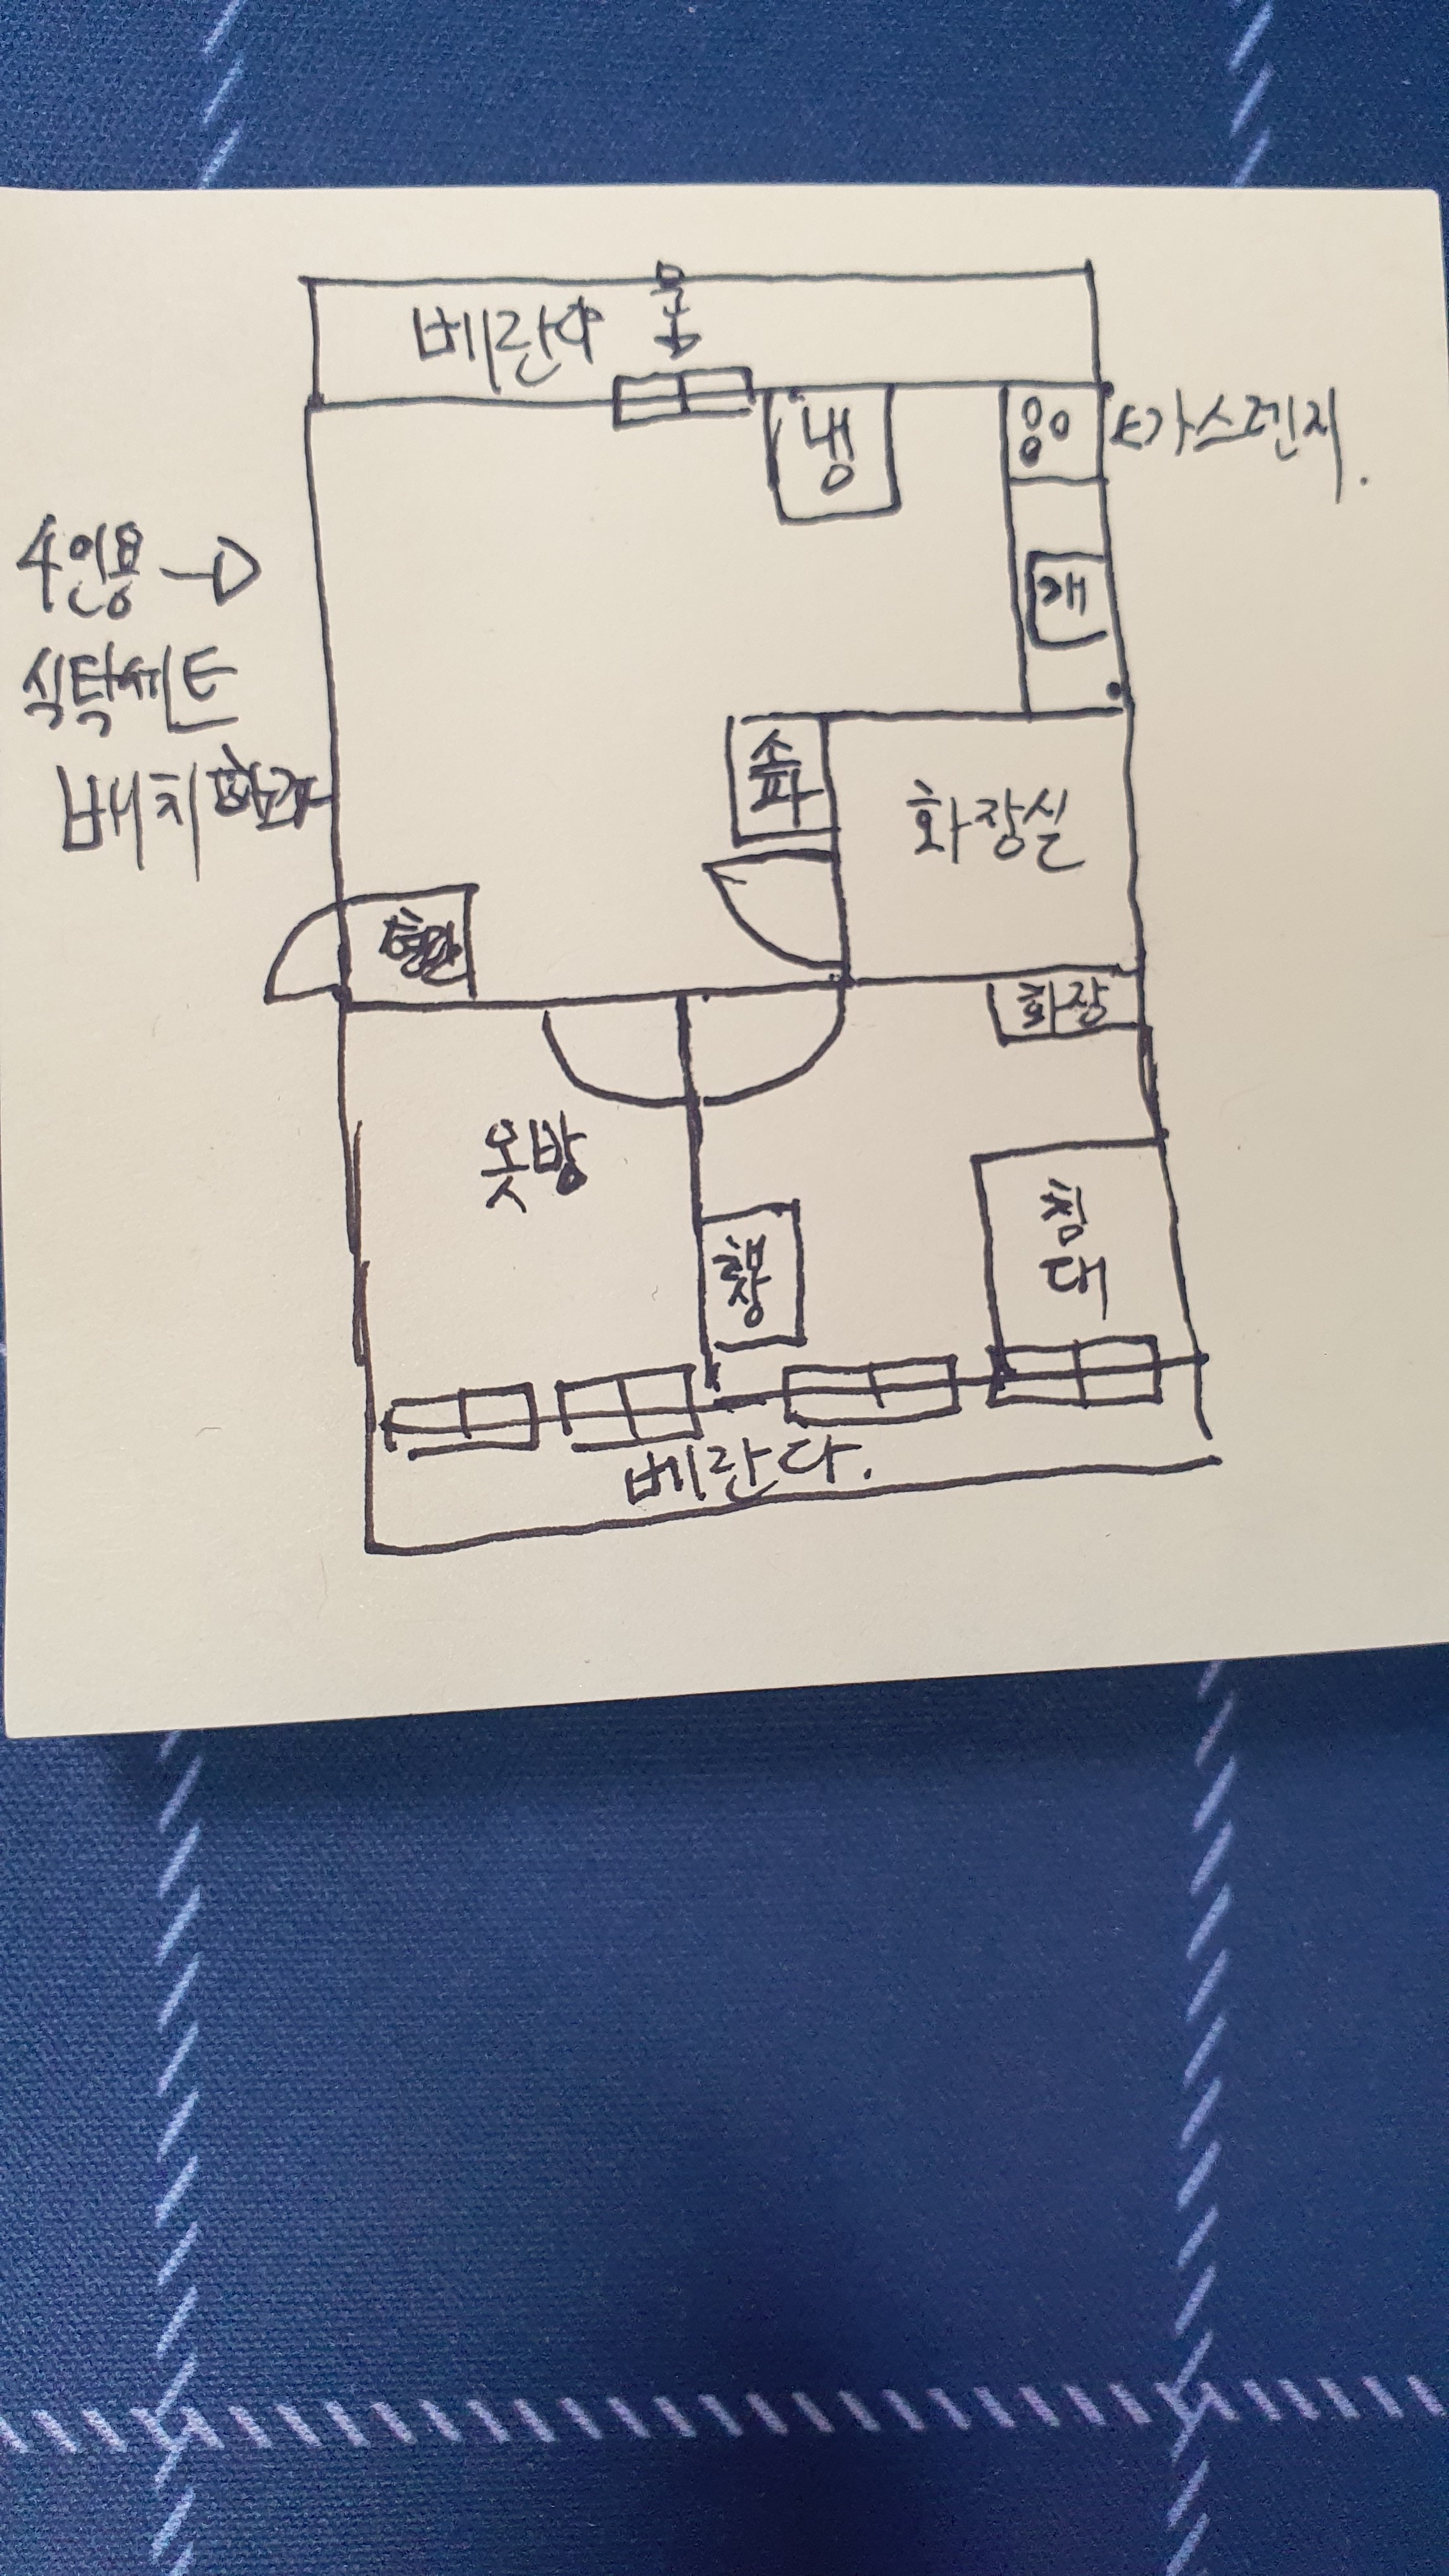 베란다 문
냉
가스렌지
개
4인용
식탁세트
배치하라
소파
화장실
현관
화장
옷방
침
대
책장
베란다.